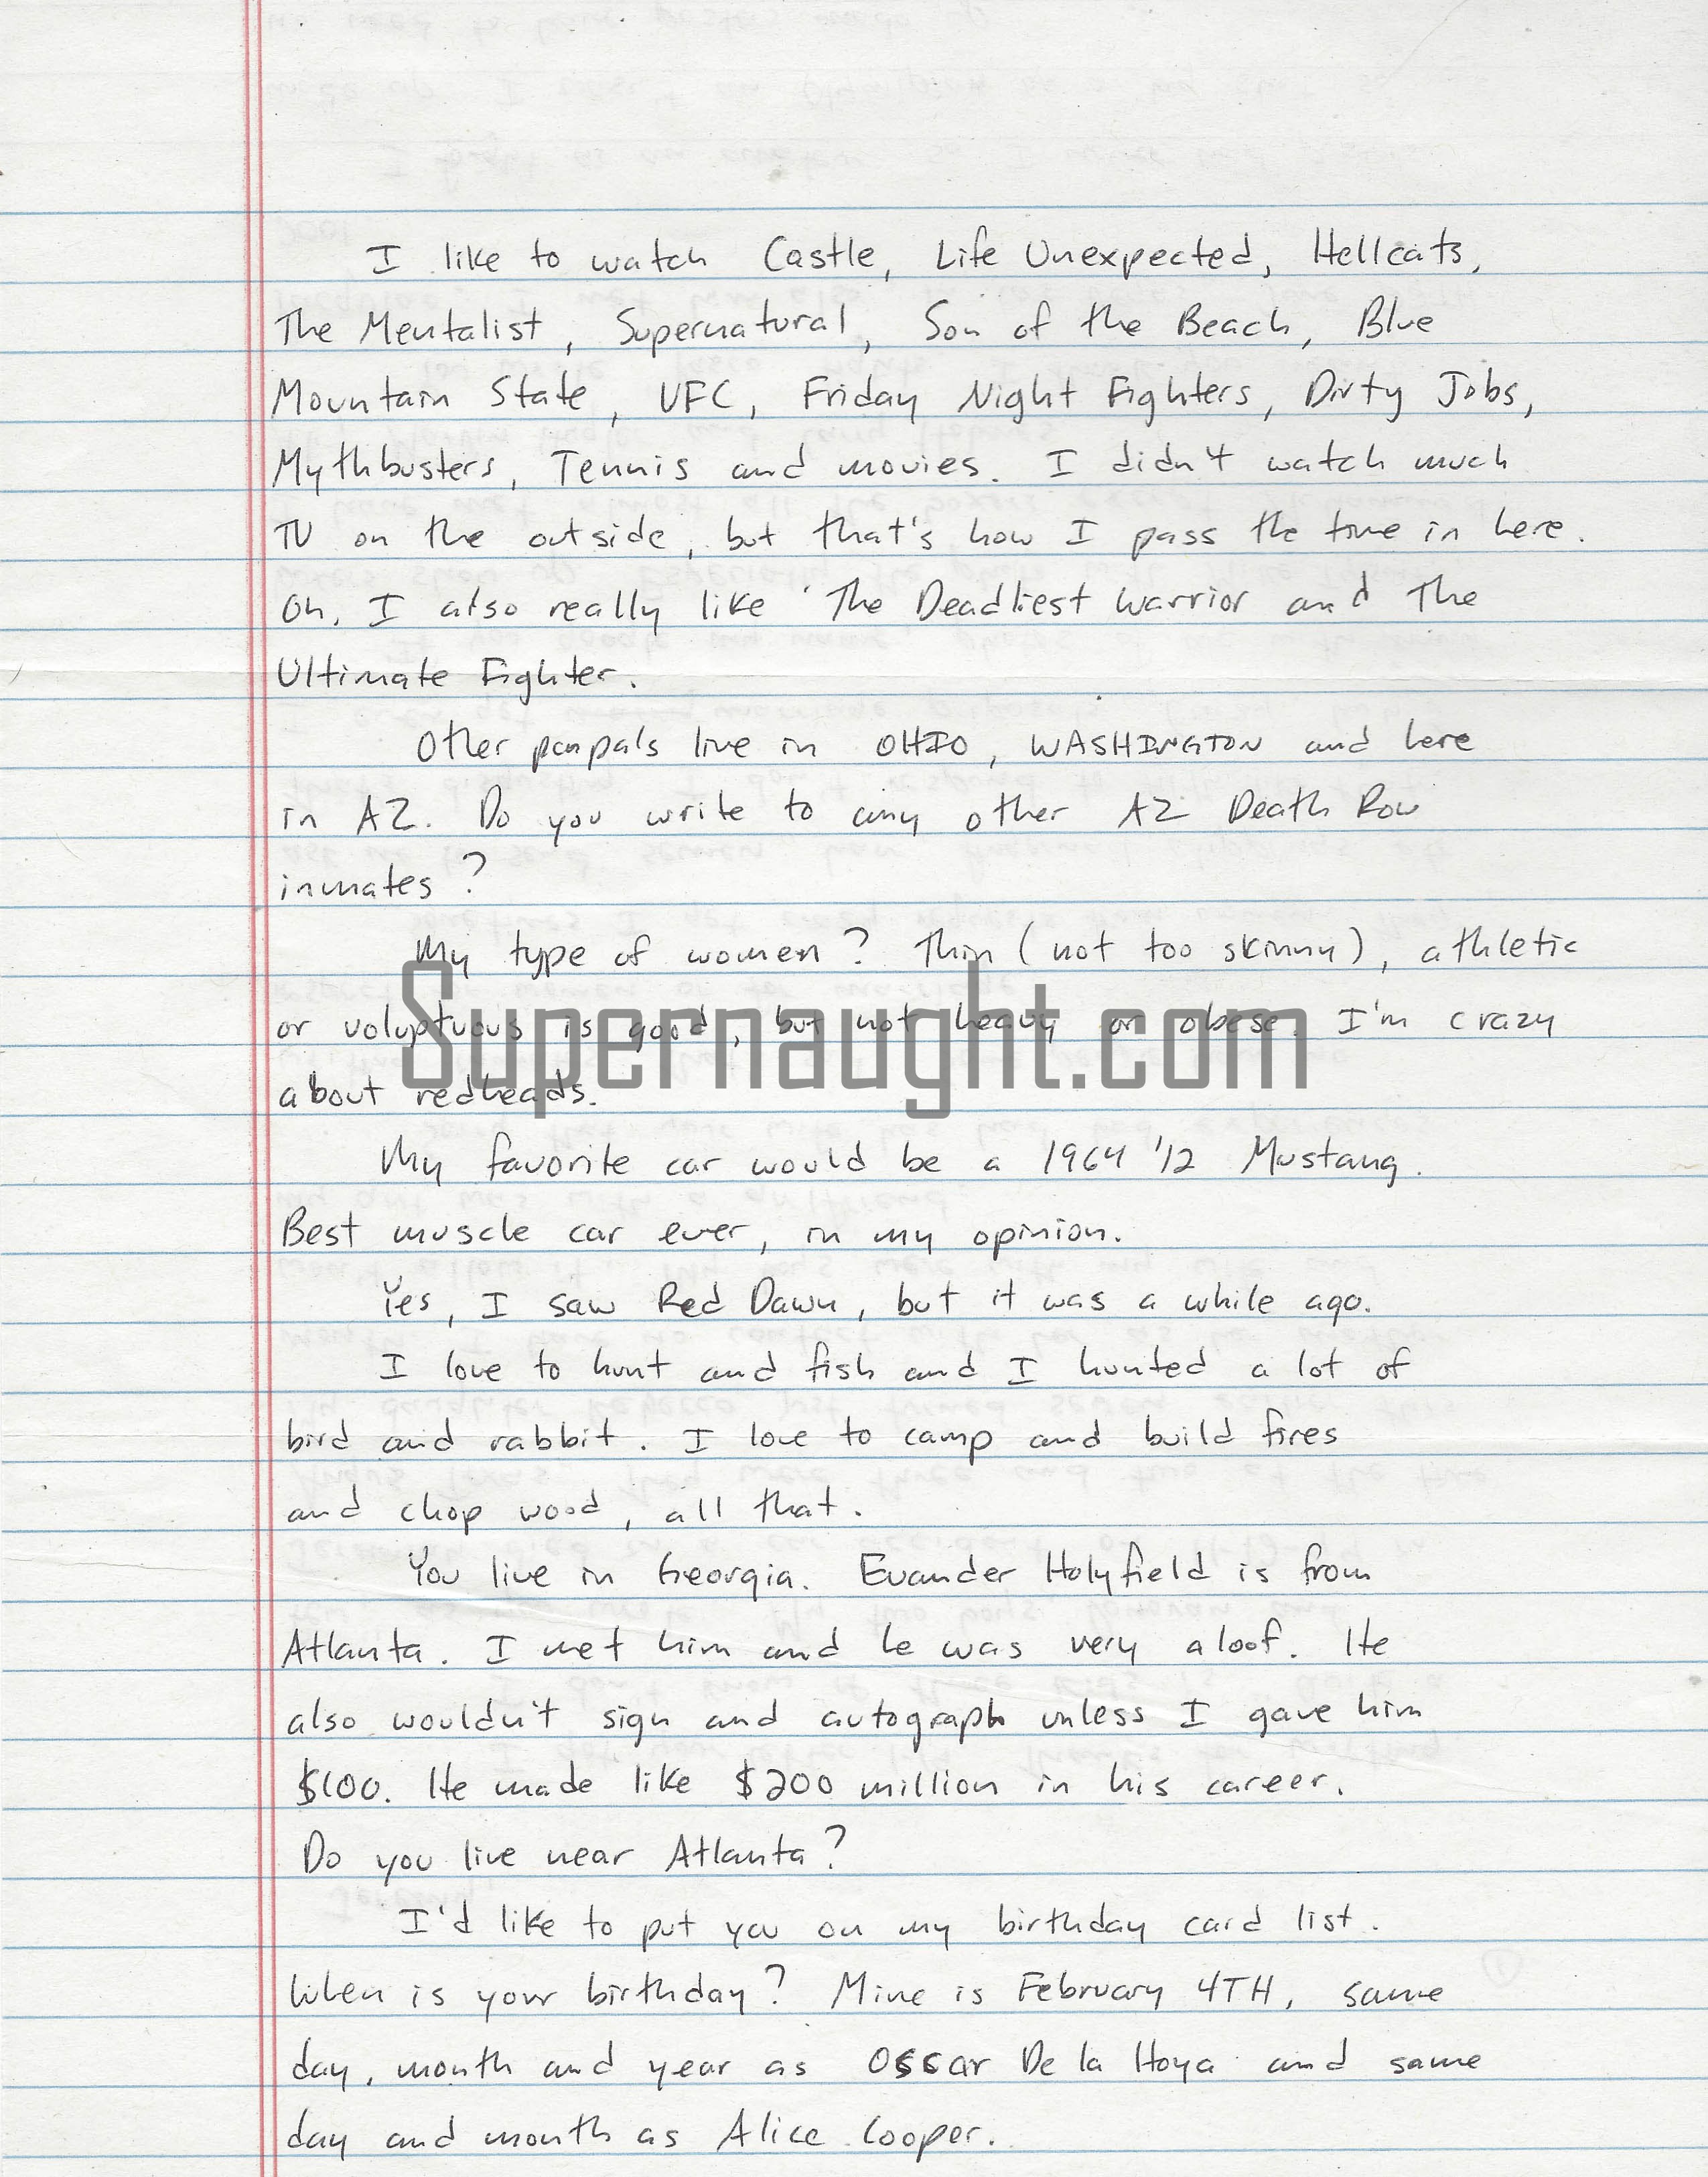 I like to watch Castle, Life Unexpected, Hellcats,
The Mentalist, Supernatural, Son of the Beach, Blue
Mountain State, UFC, Friday Night Fighters, Dirty Jobs,
Mythbusters, Tennis and movies. I didn't watch much
TV on the outside, but that's how I pass the time in here.
Oh, I also really like The Deadliest Warrior and The
Ultimate Fighter.
Other penpals live in OHIO, WASHINGTON and here
in AZ. Do you write to any other AZ Death Row
inmates?
My type of women? Thin (not too skinny), athletic
or voluptuous is good, but not heavy or obese. I'm crazy
about redheads.
Supernaught.com
My favorite car would be a 1964 '12 Mustang.
Best muscle car ever, in my opinion.
Yes, I saw Red Dawn, but it was a while ago.
I love to hunt and fish and I hunted a lot of
bird and rabbit. I love to camp and build fires
and chop wood, all that.
You live in Georgia. Evander Holyfield is from
Atlanta. I met him and he was very aloof. He
also wouldn't sign and autograph unless I gave him
$100. He made like $200 million in his career.
Do you live near Atlanta?
I'd like to put you on my birthday card list.
When is your birthday? Mine is February 4TH, same
day, month and year as Osscar De la Hoya and same
day and month as Alice Cooper.